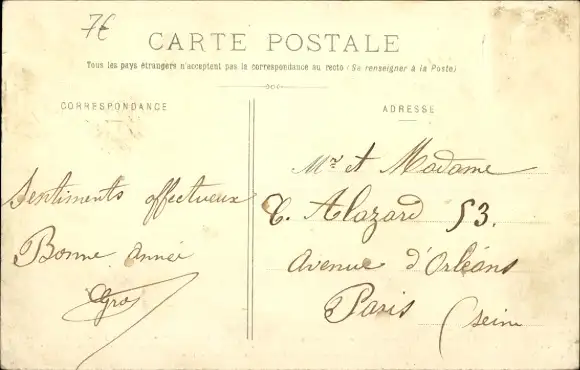 7€
CARTE POSTALE
Tous les pays étrangers n'acceptent pas la correspondance au recto (Se renseigner à la Poste)
CORRESPONDANCE
ADRESSE
Sentiments affectueux
Bonne année
Mr et Madame
C. Alazard 53.
avenue d'Orléans
Paris (Seine